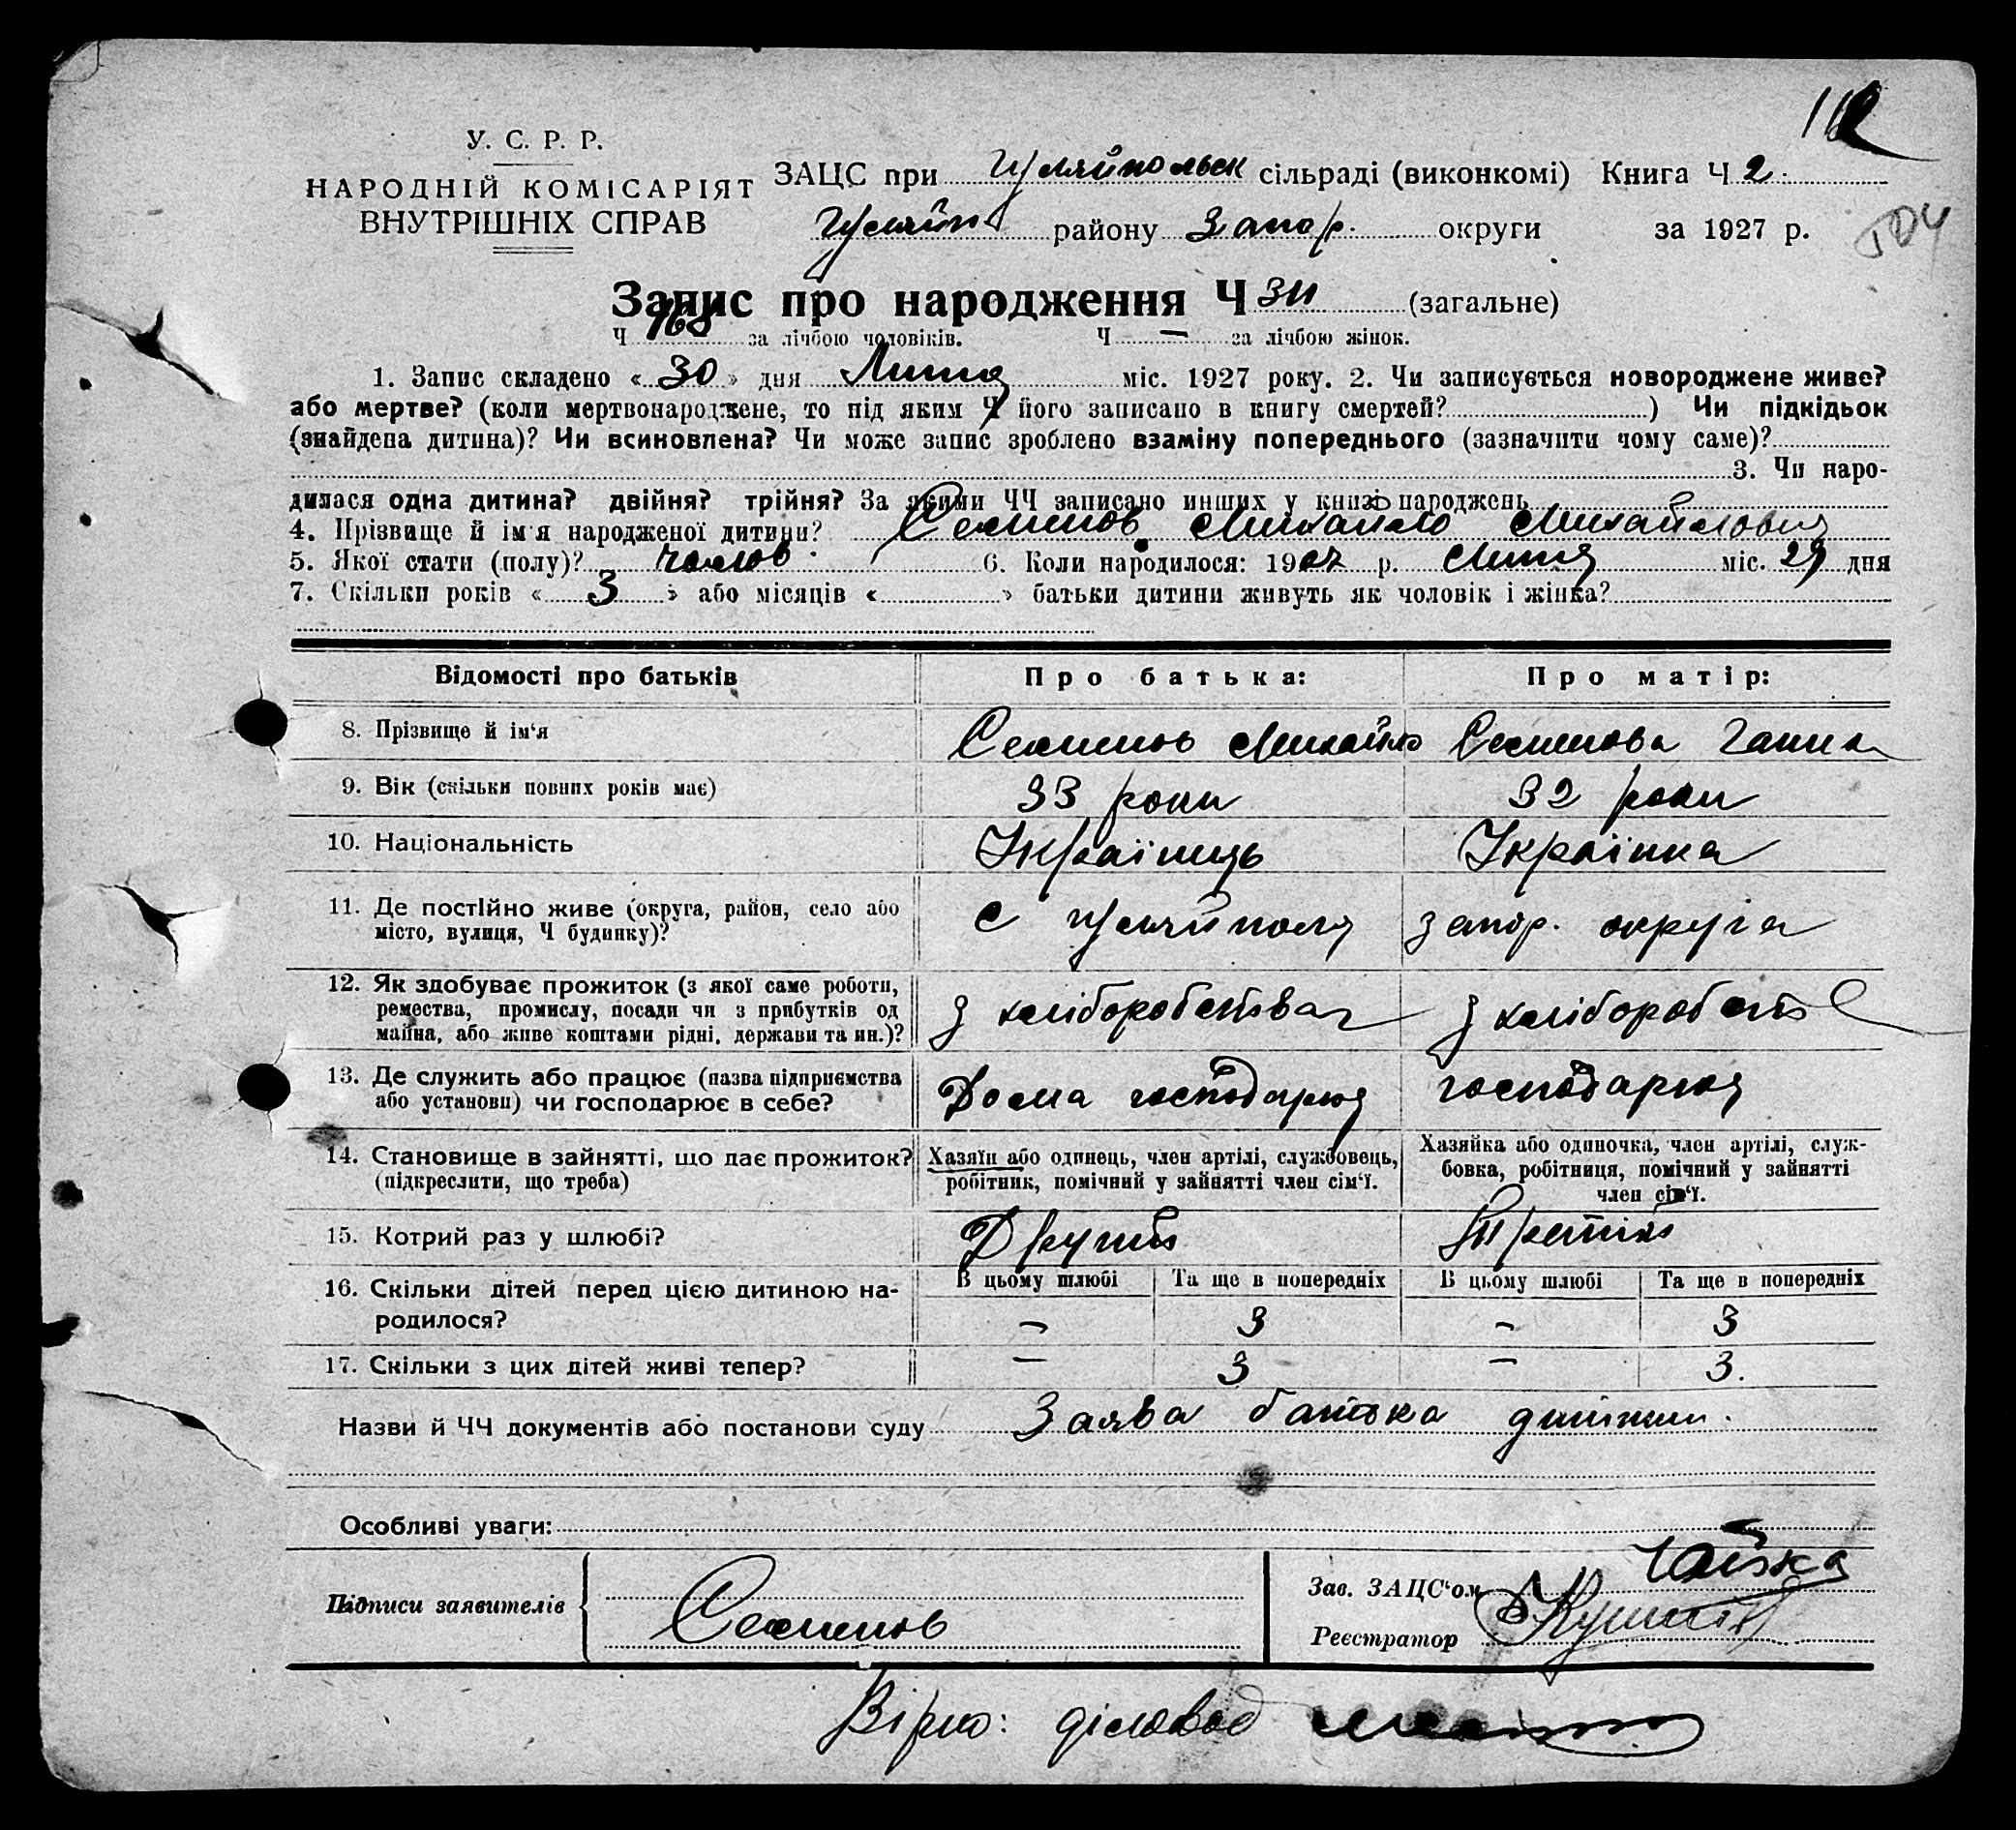 112
У. С. Р. Р.
НАРОДНІЙ КОМІСАРІЯТ
ВНУТРІШНІХ СПРАВ
ЗАЦС при Гуляйпольск сільраді (виконкомі) Книга Ч 2.
Гуляйп району Запор. округи за 1927 р.
Запис про народження Ч 311 (загальне)
Ч 168 за лічбою чоловіків. Ч — за лічбою жінок.
1. Запис складено « 30 » дня Липня міс. 1927 року. 2. Чи записується новороджене живе?
або мертве? (коли мертвонароджене, то під яким Ч його записано в книгу смертей? ) Чи підкідьок
(знайдена дитина)? Чи всиновлена? Чи може запис зроблено взаміну попереднього (зазначити чому саме)?
3. Чи наро-
дилася одна дитина? двійня? трійня? За якими ЧЧ записано инших у книзі народжень
4. Прізвище й ім'я народженої дитини? Семенов Михайло Михайлович
5. Якої стати (полу)? чолов. 6. Коли народилося: 1927 р. Липня міс. 29 дня
7. Скільки років « 3 » або місяців « » батьки дитини живуть як чоловік і жінка?
Відомості про батьків Про батька: Про матір:
8. Прізвище й ім'я Семенов Михайло Семенова Ганна
9. Вік (скільки повних років має) 33 роки 32 роки
10. Національність Українець Українка
11. Де постійно живе (округа, район, село або
місто, вулиця, Ч будинку)? с Гуляйполя запор. округа
12. Як здобуває прожиток (з якої саме роботи,
ремества, промислу, посади чи з прибутків од
майна, або живе коштами рідні, держави та ин.)? З хліборобства З хлібороб
13. Де служить або працює (назва підприємства
або установи) чи господарює в себе? Дома господарює господарює
14. Становище в зайнятті, що дає прожиток?
(підкреслити, що треба)
Хазяїн або одинець, член артілі, службовець,
робітник, помічний у зайнятті член сім'ї.
Хазяйка або одиночка, член артілі, служ-
бовка, робітниця, помічний у зайнятті
член сім'ї.
15. Котрий раз у шлюбі? Другий Третій
16. Скільки дітей перед цією дитиною на-
родилося?
В цьому шлюбі Та ще в попередніх В цьому шлюбі Та ще в попередніх
— 3 — 3
17. Скільки з цих дітей живі тепер? — 3 — 3.
Назви й ЧЧ документів або постанови суду Заява батька дитини.
Особливі уваги:
Підписи заявителів Семенов
Зав. ЗАЦС'ом
Реєстратор
Вірно: діловод